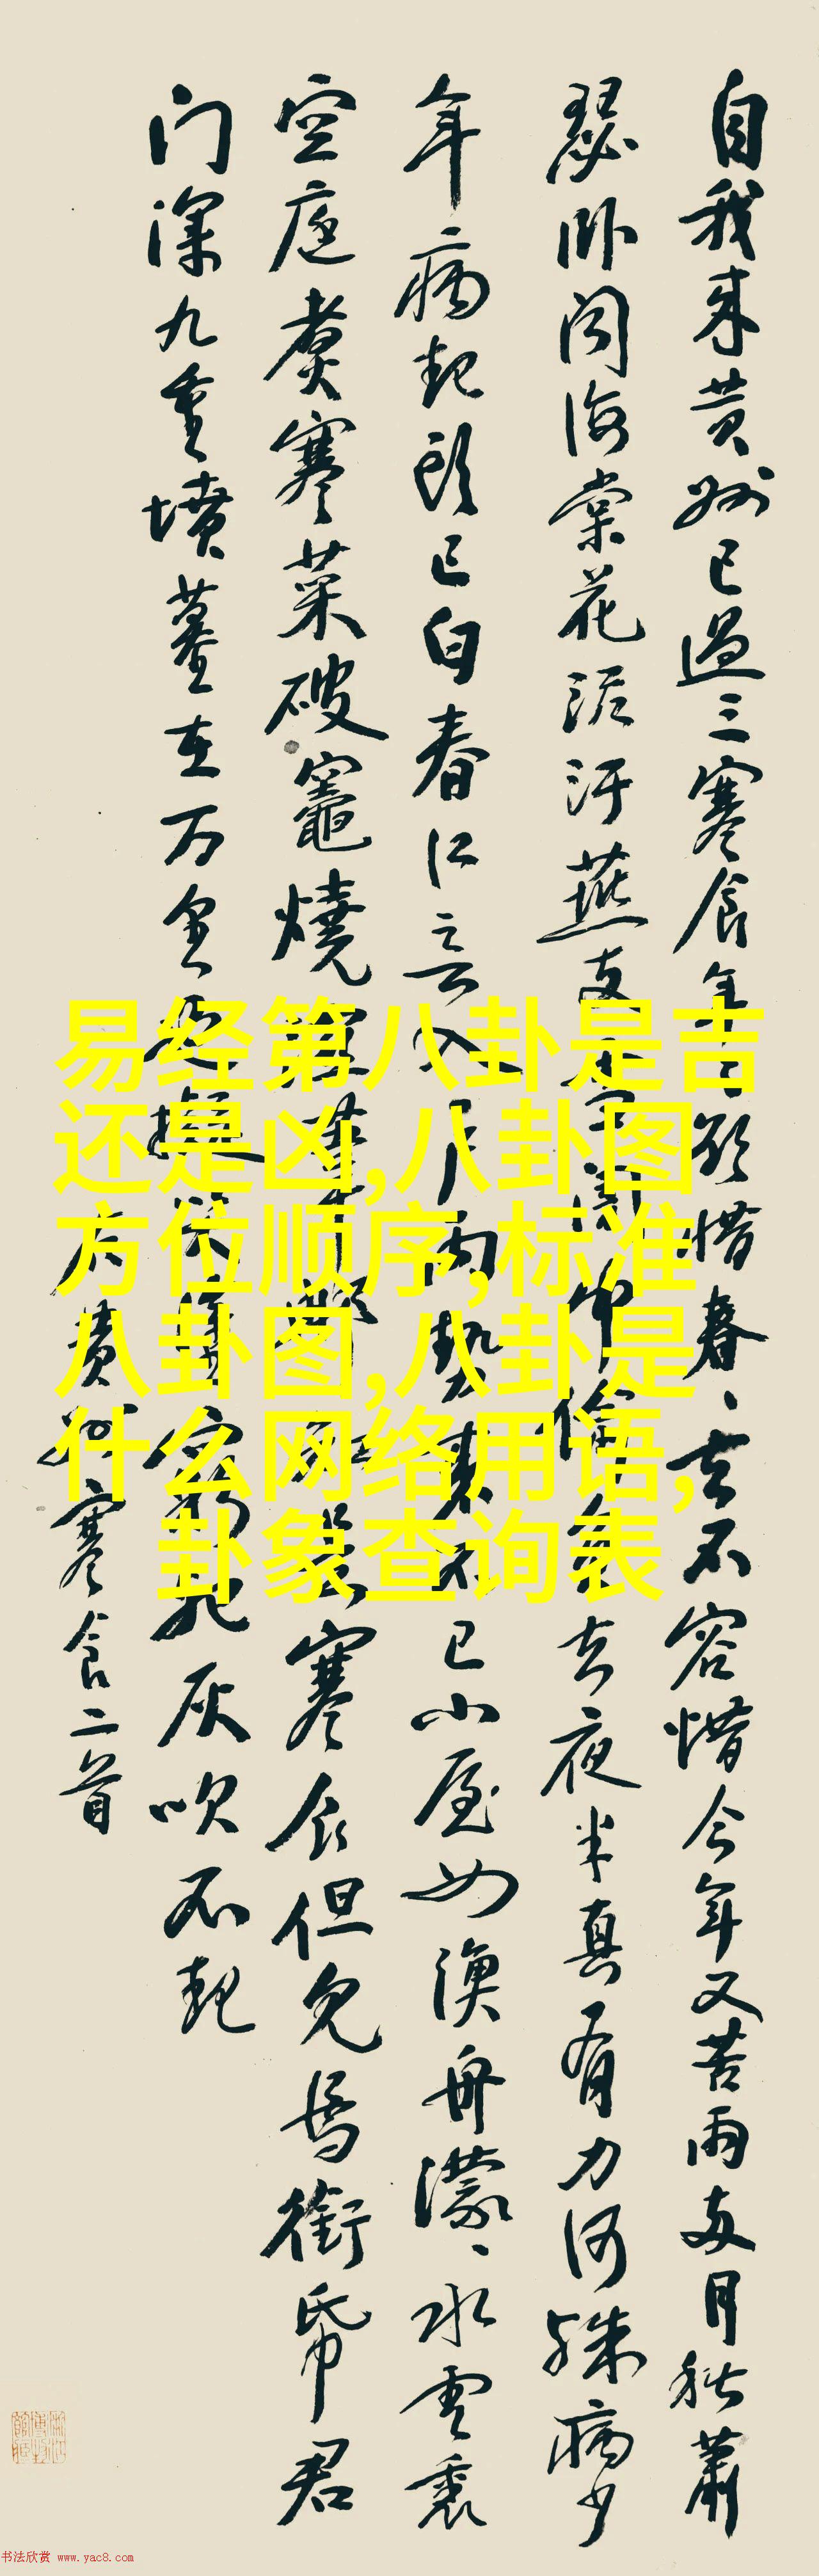 自我来黄州已過三寒食年年欲惜春、去不容惜今年又苦雨两月秋蕭
瑟卧闻海棠花泥汙燕支雪闇中偷負去夜半真有力何殊病少
年病起頭已白春江入户雨势来不已小屋如渔舟濛、水雲裏
空庖煮寒菜破竈燒湿苇寒食但見烏銜帋君
门深九重墳墓在万里也擬哭窮死灰吹不起
右黄州寒食二首
易经第八卦是吉
还是凶,八卦图
方位顺序,标准
八卦图,八卦是
什么网络用语,
卦象查询表
书法欣赏 www.yac8.com